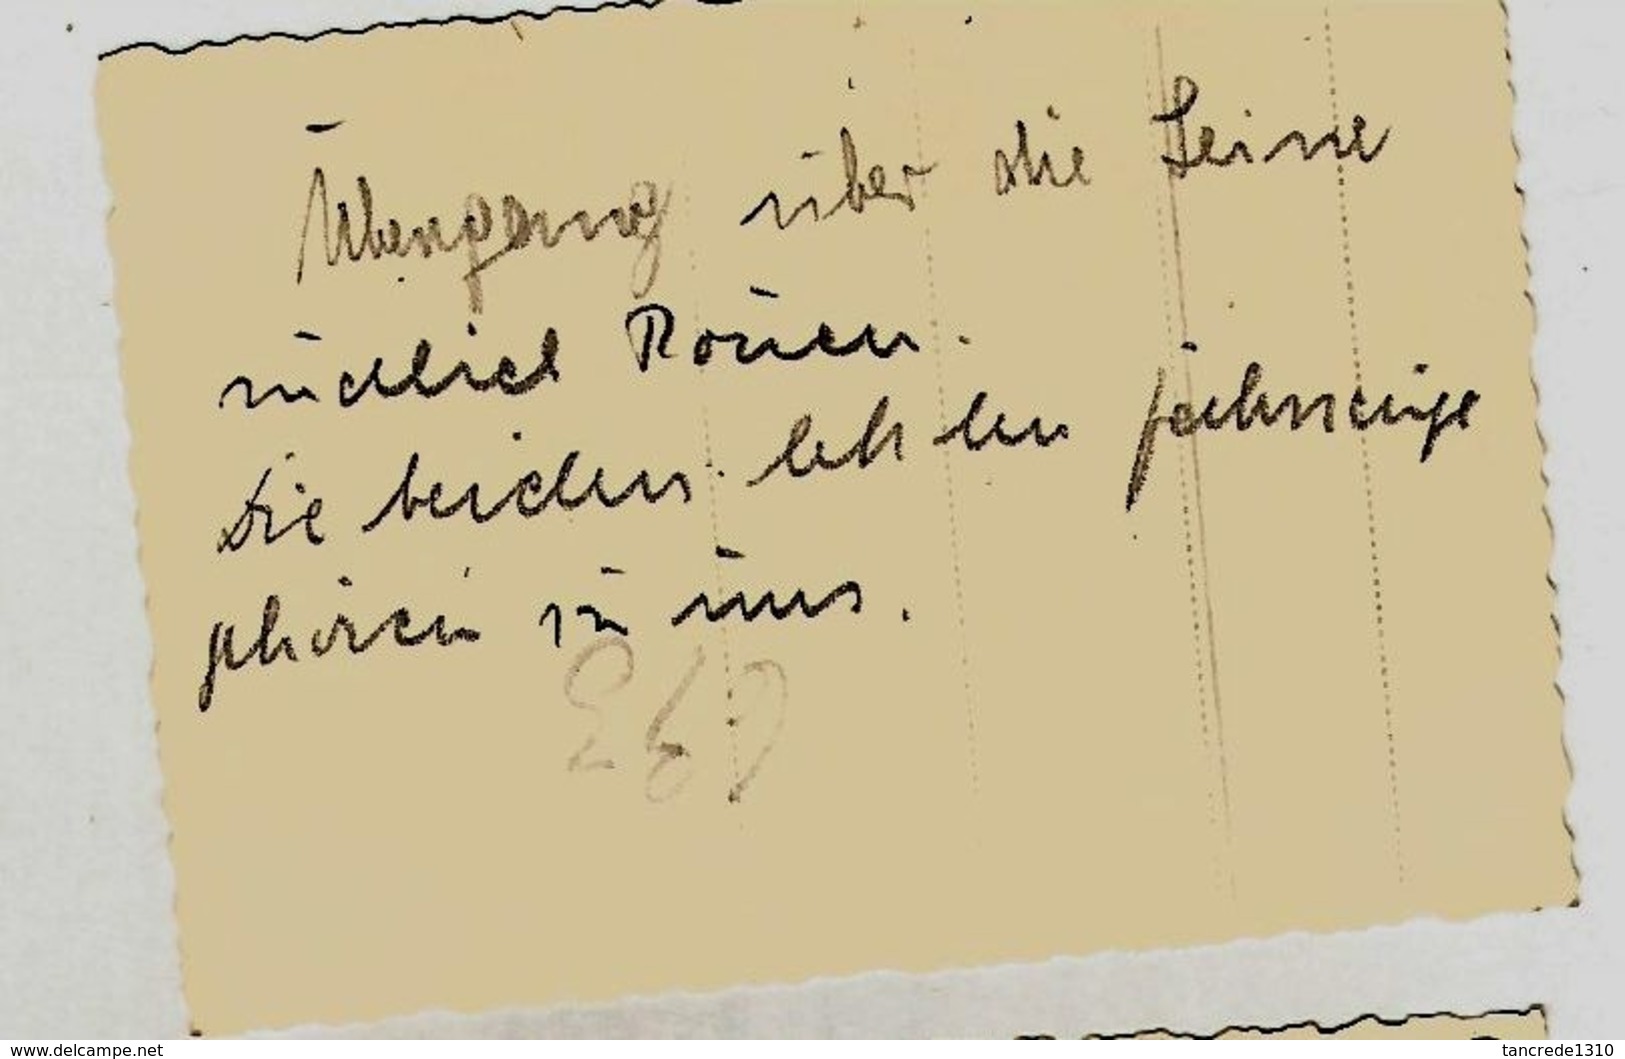 Übergang über die Seine
südlich Rouen.
Die beiden letzten Fahrzeuge
gehören zu uns.
www.delcampe.net
tancrede1310